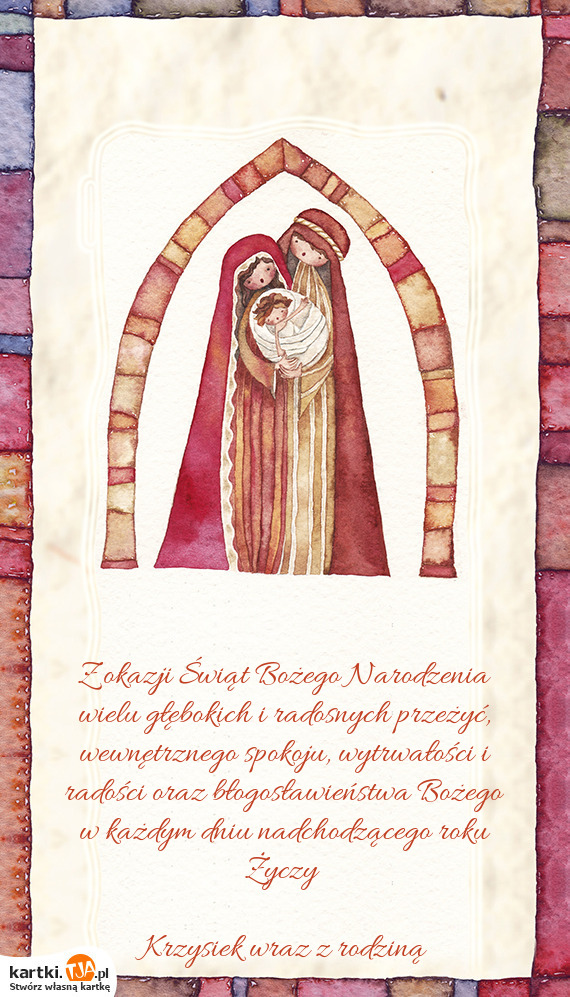 Z okazji Świąt Bożego Narodzenia
wielu głębokich i radosnych przeżyć,
wewnętrznego spokoju, wytrwałości i
radości oraz błogosławieństwa Bożego
w każdym dniu nadchodzącego roku
Życzy
Krzysiek wraz z rodziną
kartki.TJA.pl
Stwórz własną kartkę